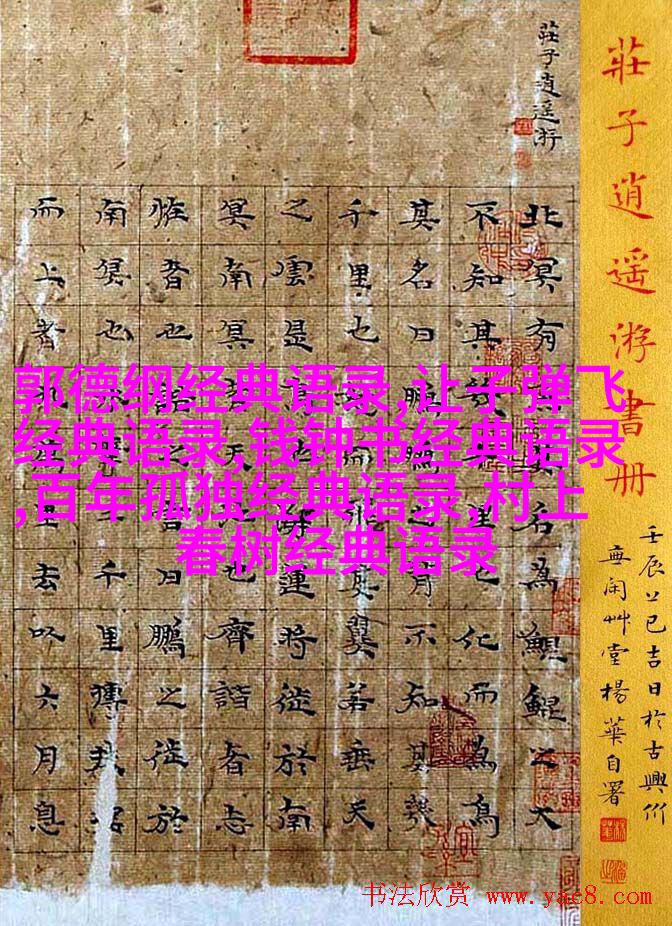 莊子逍遥游書册
壬辰乙巳吉日於古興
閑艸堂楊華自署
莊子逍遥游
北冥有魚其名為鯤鯤之大
不知其幾千里也化而為鳥
其名曰鵬鵬之背不知其幾
千里也怒而飛其翼若垂天
之雲是鳥也海運將徙於南
冥南冥者天池也齊諧者志
怪者也諧之言曰鵬之徙於
南冥也水擊三千里摶扶搖
而上者九萬里去以六月息
郭德纲经典语录,让子弹飞
经典语录,钱钟书经典语录
,百年孤独经典语录,村上
春树经典语录
书法欣赏 www.yac8.com